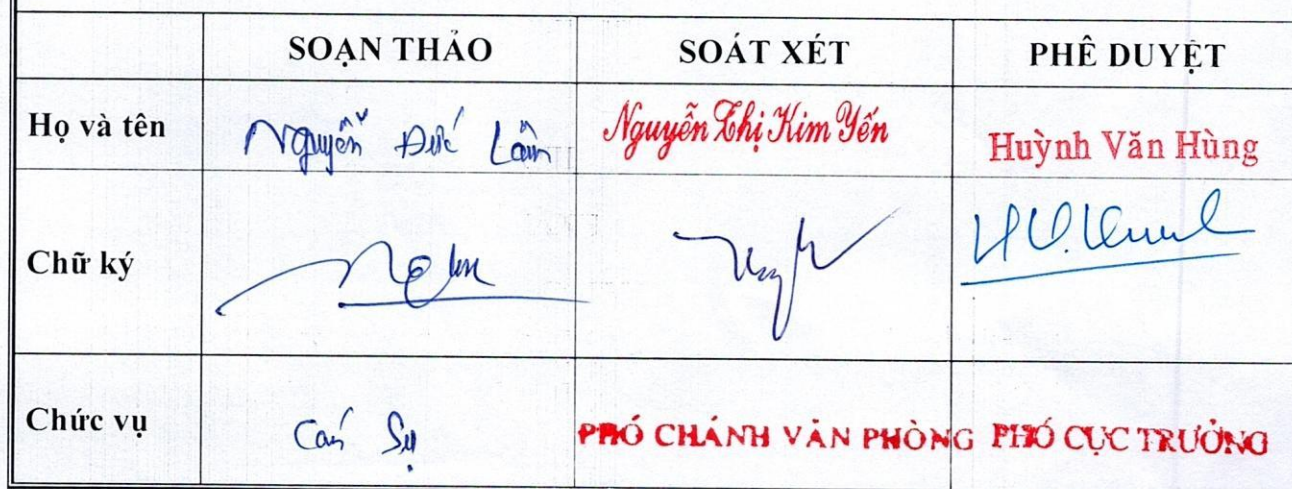 SOẠN THẢO SOÁT XÉT PHÊ DUYỆT
Họ và tên Nguyễn Đức Lâm Nguyễn Thị Kim Yến Huỳnh Văn Hùng
Chữ ký
Chức vụ Cán Sự PHÓ CHÁNH VĂN PHÒNG PHÓ CỤC TRƯỞNG